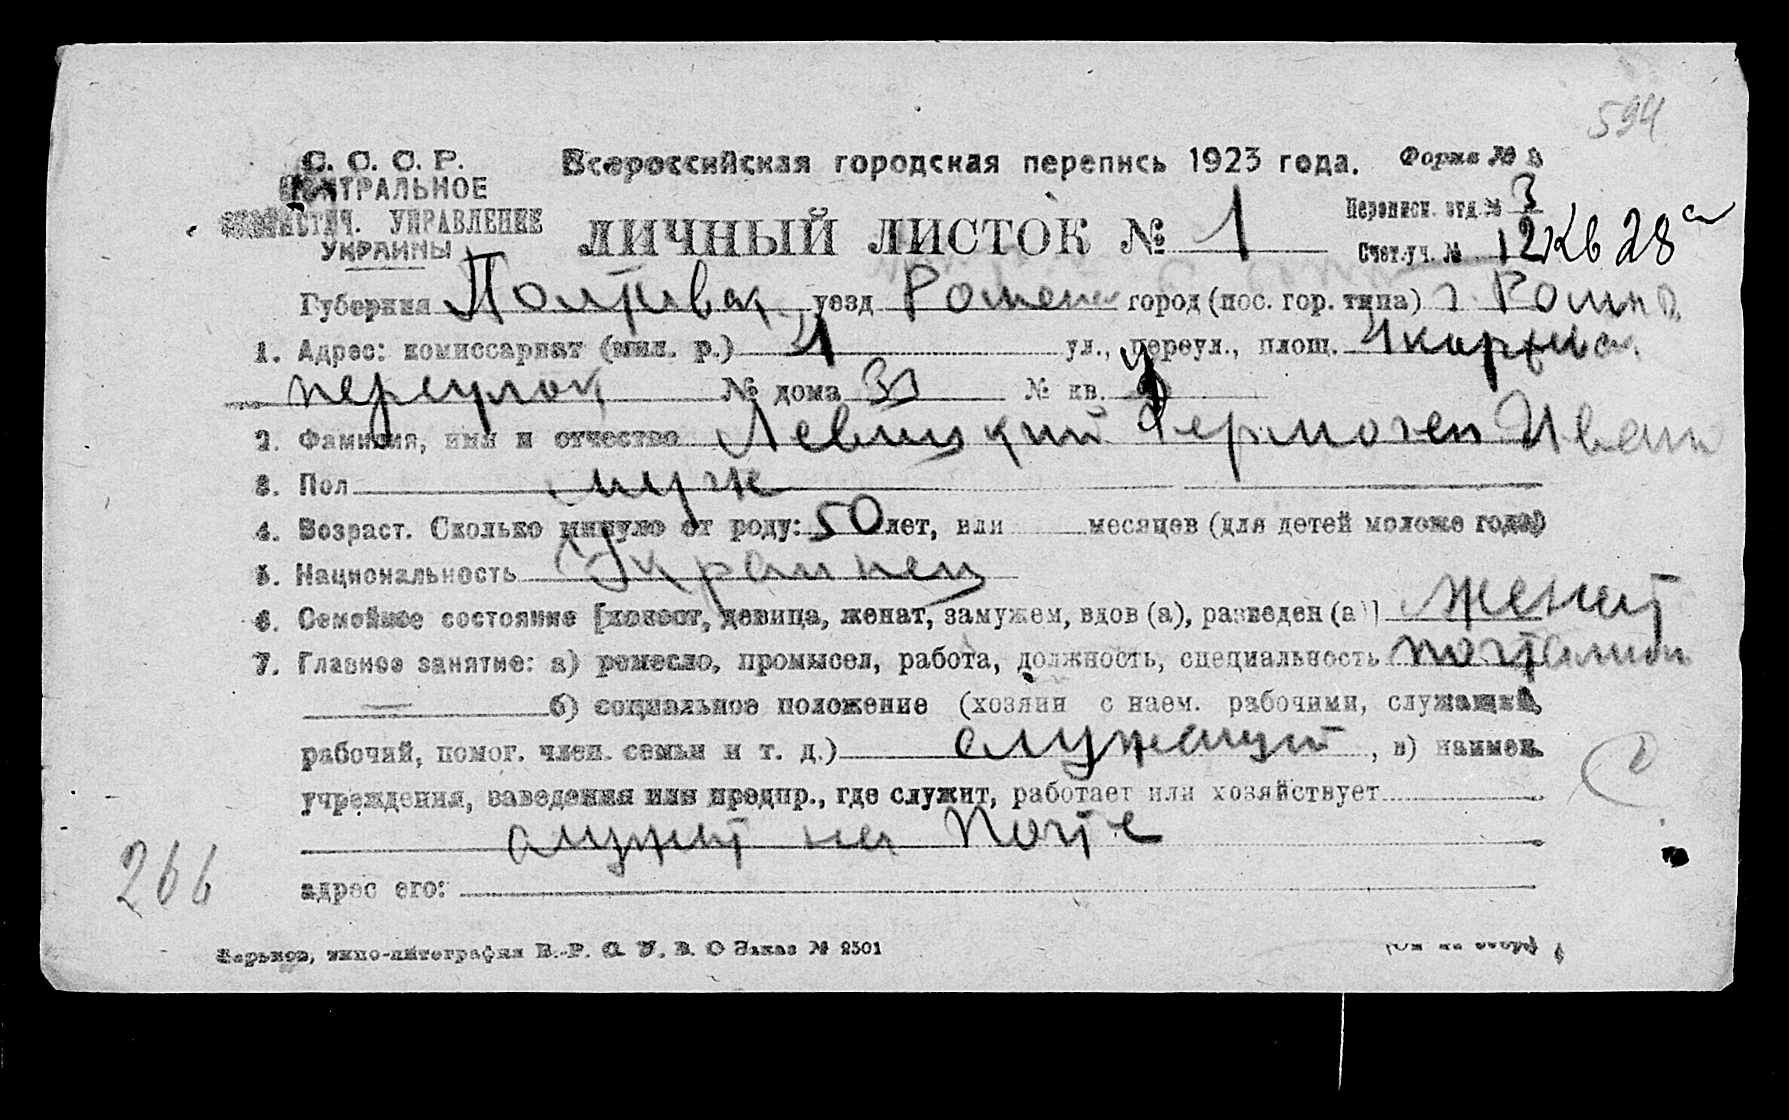 594
С. С. С. Р. Всероссийская городская перепись 1923 года. Форма №
ЦЕНТРАЛЬНОЕ
СТАТИСТИЧ. УПРАВЛЕНИЕ
УКРАИНЫ
ЛИЧНЫЙ ЛИСТОК № 1
Переписн. отд. № 3
Счетн. уч. № 12 Кв 28
Губерния Полтавск уезд Роменск город (пос. гор. типа) г. Ромны
1. Адрес: комиссариат (мил. р.) 1 ул., переул., площ.
переулок № дома № кв.
2. Фамилия, имя и отчество Левицкий Фермоген Иван
3. Пол муж
4. Возраст. Сколько минуло от роду: 50 лет, или месяцев (для детей моложе года)
5. Национальность Украинец
6. Семейное состояние [холост, девица, женат, замужем, вдов (а), разведен (а)] женат
7. Главное занятие: а) ремесло, промысел, работа, должность, специальность почталион
б) социальное положение (хозяин с наем. рабочими, служащий,
рабочий, помог. член. семьи и т. д.) служащий, в) наимен.
учреждения, заведения или предпр., где служит, работает или хозяйствует
служит на Почте
266
адрес его:
Харьков, типо-литография В.-Р. С. У. В. О Заказ № 2501